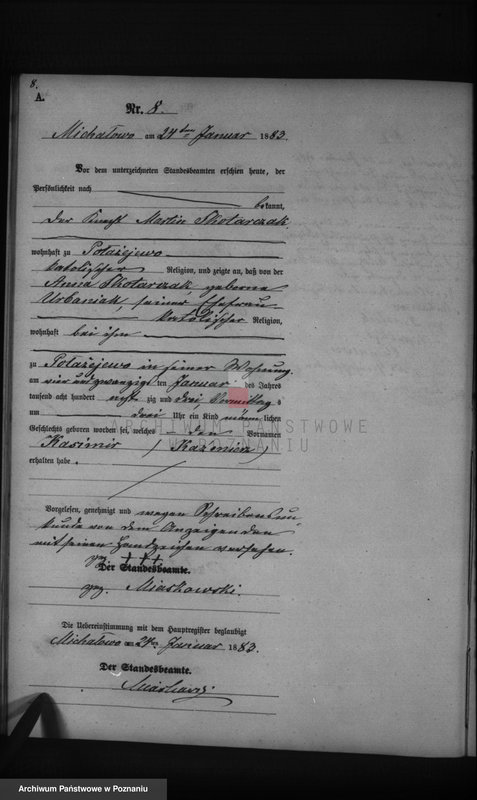 8.
A.
Nr. 8.
Michałowo am 24ten Januar 1883.
Vor dem unterzeichneten Standesbeamten erschien heute, der
Persönlichkeit nach
bekannt,
der Knecht Martin Skotarczak
wohnhaft zu Polażejewo
katolischer Religion, und zeigte an, daß von der
Anna Skotarczak, geborne
Urbaniak, seiner Ehefrau
katolischer Religion,
wohnhaft bei ihm
zu Polażejewo in seiner Wohnung
am vier und zwanzigsten Januar des Jahres
tausend acht hundert acht zig und drei Vormittags
um drei Uhr ein Kind männlichen
Geschlechts geboren worden sei, welches den Vornamen
Kasimir (Kazimierz)
erhalten habe.
Vorgelesen, genehmigt und wegen Schreibensun
kunde von dem Anzeigenden
mit seinen Handzeichen versehen.
gz. + + +
Der Standesbeamte.
gz. Miaskowski.
Die Uebereinstimmung mit dem Hauptregister beglaubigt
Michałowo am 24ten Januar 1883.
Der Standesbeamte.
Miaskowski
ARCHIWUM PAŃSTWOWE
W POZNANIU
Archiwum Państwowe w Poznaniu